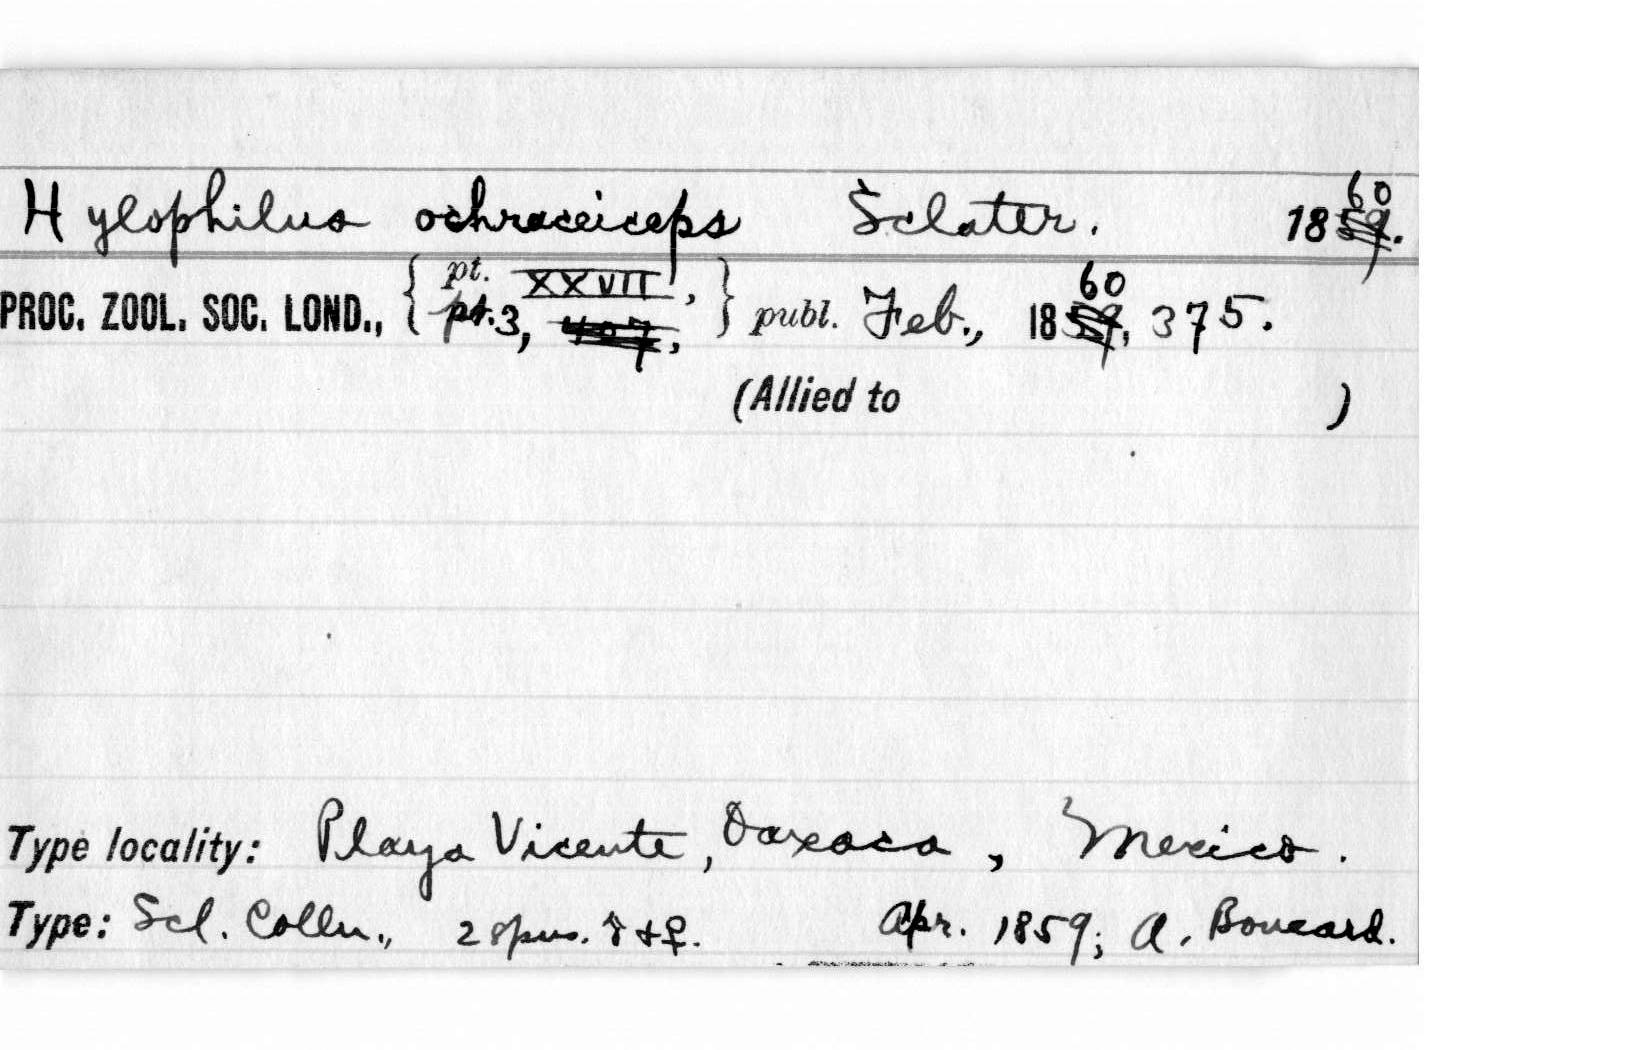 Hylophilus ochraceiceps Sclater. 1860.
PROC. ZOOL. SOC. LOND., { pt. XXVII, pt. 3, } publ. Feb., 1860, 375.
(Allied to )
Type locality: Playa Vicente, Oaxaca, Mexico.
Type: Scl. Colln., 2 spms. ♂ + ♀. Apr. 1859; A. Boucard.